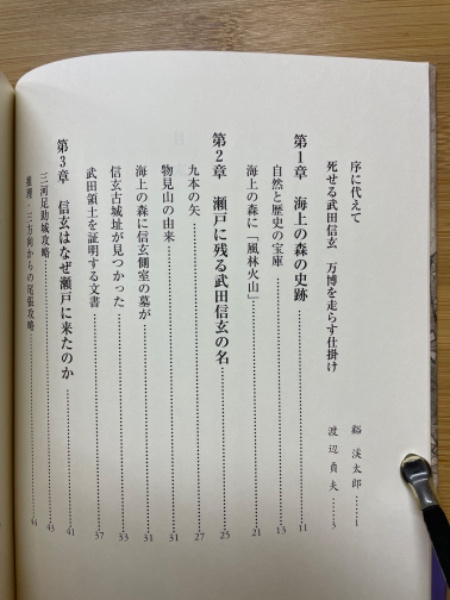 序に代えて 谿 渓太郎……1
死せる武田信玄 万博を走らす仕掛け 渡辺貞夫……3
第1章 海上の森の史跡……11
自然と歴史の宝庫……13
海上の森に「風林火山」……21
第2章 瀬戸に残る武田信玄の名……25
九本の矢……27
物見山の由来……31
海上の森に信玄側室の墓が……31
信玄古城址が見つかった……33
武田領土を証明する文書……37
第3章 信玄はなぜ瀬戸に来たのか……41
三河足助城攻略……43
推理・三方向からの尾張攻略……44